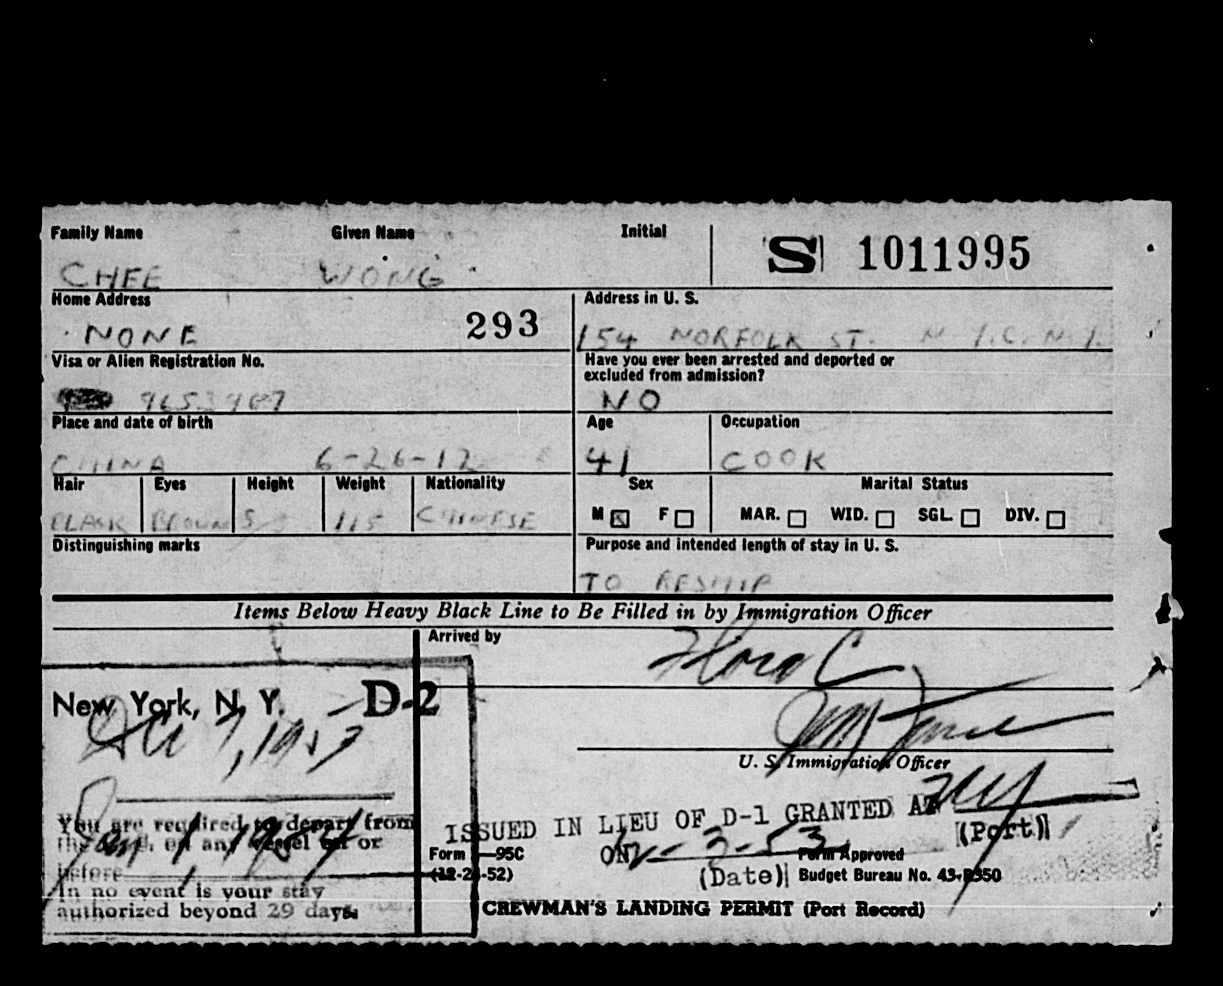 Family Name Given Name Initial
S 1011995
CHEE WONG
Home Address
NONE 293
Address in U. S.
154 NORFOLK ST. N.Y.C. N.Y.
Visa or Alien Registration No.
Have you ever been arrested and deported or
excluded from admission?
NO
Place and date of birth
CHINA 6-26-12
Age Occupation
41 COOK
Hair Eyes Height Weight Nationality
BLACK BROWN 5 115 CHINESE
Sex Marital Status
M F MAR. WID. SGL. DIV.
Distinguishing marks
Purpose and intended length of stay in U. S.
TO RESHIP
Items Below Heavy Black Line to Be Filled in by Immigration Officer
Arrived by
Flora C
New York, N. Y. D-2
7, 1953
U. S. Immigration Officer
You are required to depart from
the on any vessel on or
before Jan 1, 1954
In no event is your stay
authorized beyond 29 days.
ISSUED IN LIEU OF D-1 GRANTED AT
(Port)
ON
(Date)
Form I-95C
(12-24-52)
Form Approved
Budget Bureau No. 43-R350
CREWMAN'S LANDING PERMIT (Port Record)